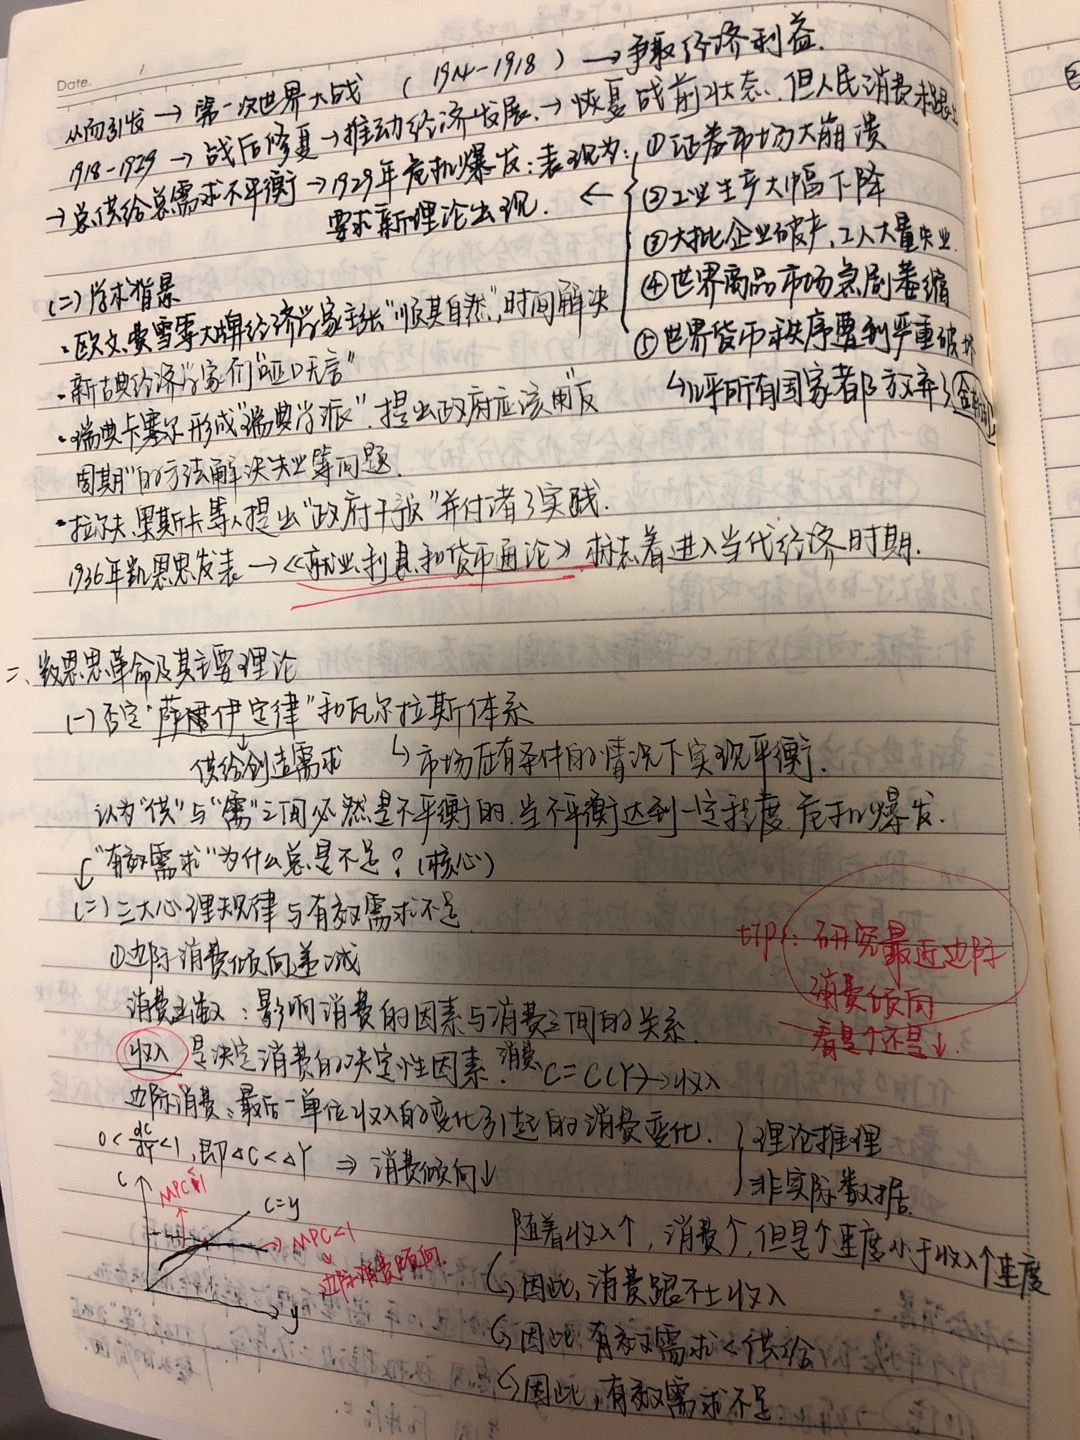 Date.
从而引发 → 第一次世界大战 (1914-1918) → 争取经济利益.
1918-1929 → 战后修复 → 推动经济发展. → 恢复战前状态. 但人民消费未跟上
→ 总供给总需求不平衡 → 1929年危机爆发: 表现为: ① 证券市场大崩溃
② 工业生产大幅下降
要求新理论出现. ←
③ 大批企业破产, 工人大量失业.
④ 世界商品市场急剧萎缩
⑤ 世界货币秩序遭到严重破坏
↳ 几乎所有国家都放弃了金本位
(二) 学术背景
· 欧文.费雪等大牌经济学家主张"顺其自然", 时间解决
· 新古典经济学家们"哑口无言"
· 瑞典卡塞尔形成"瑞典学派". 提出政府应该用"反
周期"的方法解决失业等问题.
· 拉尔夫.果斯卡等人提出"政府干预"并付诸了实践.
1936年凯恩思发表 → 《就业.利息和货币通论》标志着进入当代经济时期.
二、凯恩思革命及其主要理论
(一) 否定"萨伊定律"和瓦尔拉斯体系
供给创造需求
↳ 市场在有条件的情况下实现平衡.
认为"供"与"需"之间必然是不平衡的. 当不平衡达到一定程度. 危机爆发.
"有效需求"为什么总是不足? (核心)
(二) 三大心理规律与有效需求不足
① 边际消费倾向递减
tips: 研究最近边际
消费倾向
看是↑还是↓.
消费函数: 影响消费的因素与消费之间的关系.
收入 是决定消费的决定性因素. 消费 C = C(Y) → 收入
边际消费: 最后一单位收入的变化引起的消费变化.
0 < dC/dY < 1, 即 △C < △Y ⇒ 消费倾向↓
理论推理
非实际数据
C
C=y
MPC<1
边际消费倾向
y
随着收入↑, 消费↑, 但是↑速度小于收入↑速度
↳ 因此, 消费跟不上收入
↳ 因此 有效需求 < 供给
↳ 因此, 有效需求不足